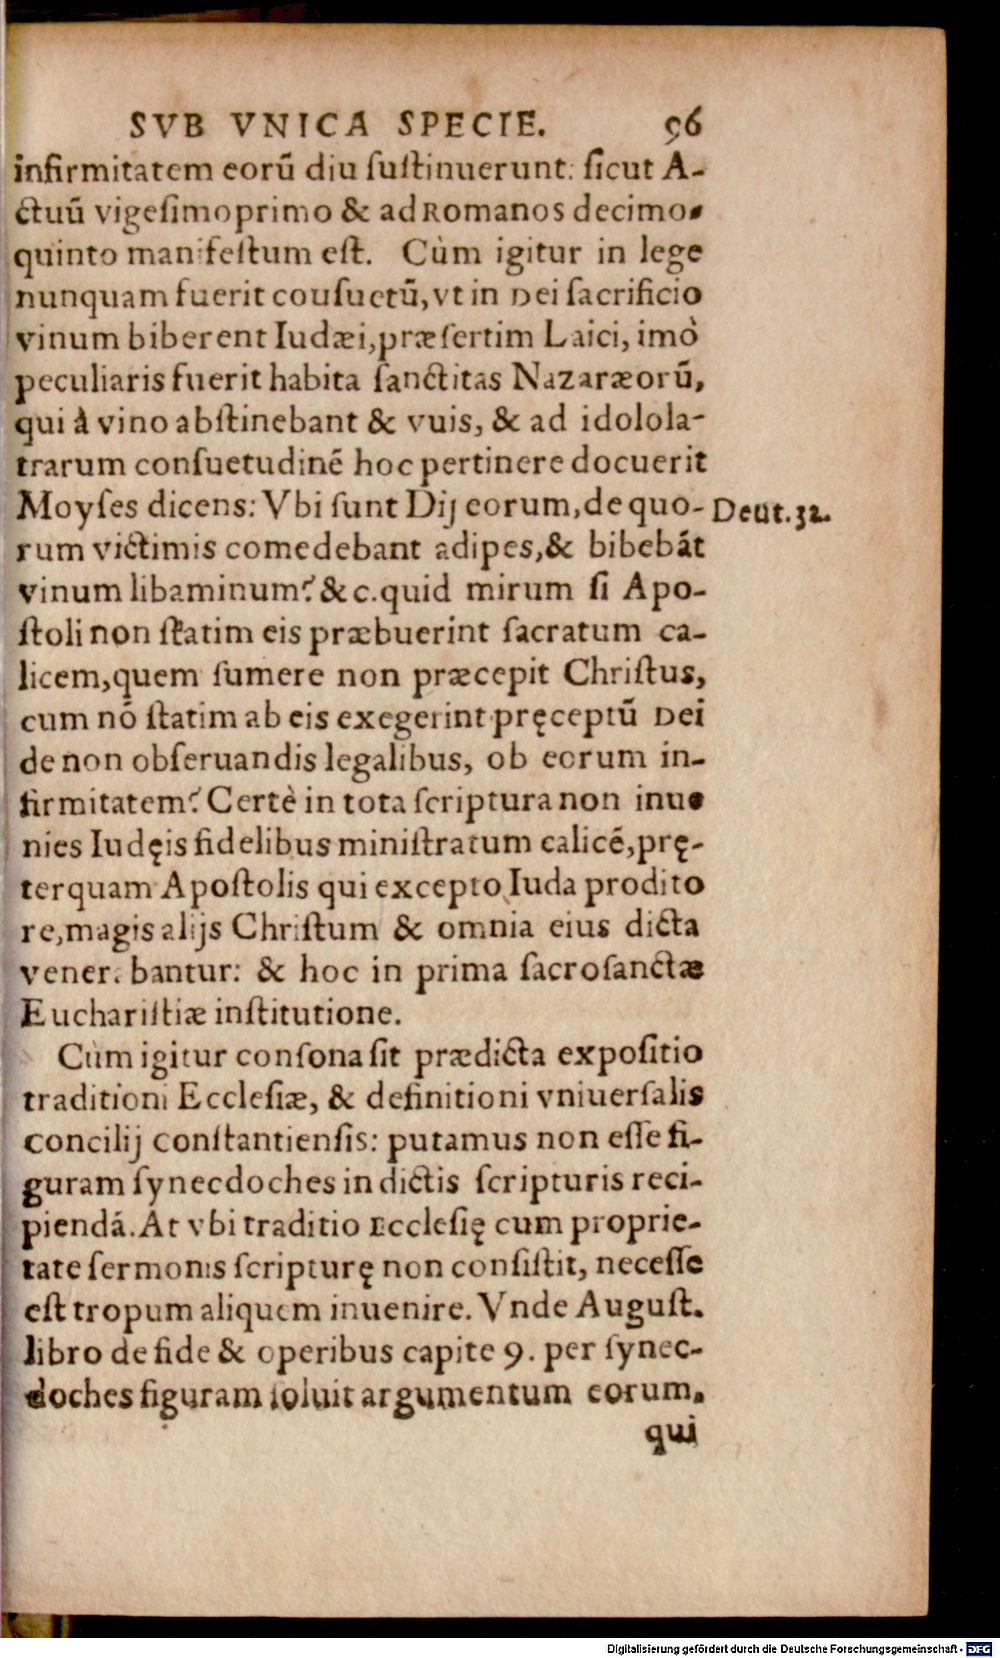 SVB VNICA SPECIE. 96
infirmitatem eorū diu ſuſtinuerunt: ſicut A-
ctuū vigeſimoprimo & ad Romanos decimo-
quinto manifeſtum eſt. Cùm igitur in lege
nunquam fuerit couſuetū, vt in Dei ſacrificio
vinum biberent Iudæi, præſertim Laici, imò
peculiaris fuerit habita ſanctitas Nazaræorū,
qui à vino abſtinebant & vuis, & ad idolola-
trarum conſuetudinē hoc pertinere docuerit
Moyſes dicens: Vbi ſunt Dij eorum, de quo-
Deut. 32.
rum victimis comedebant adipes, & bibebāt
vinum libaminum? & c. quid mirum ſi Apo-
ſtoli non ſtatim eis præbuerint ſacratum ca-
licem, quem ſumere non præcepit Chriſtus,
cum nō ſtatim ab eis exegerint pręceptū Dei
de non obſeruandis legalibus, ob eorum in-
firmitatem? Certè in tota ſcriptura non inue
nies Iudęis fidelibus miniſtratum calicē, prę-
terquam Apoſtolis qui excepto Iuda prodito
re, magis alijs Chriſtum & omnia eius dicta
venerabantur: & hoc in prima ſacroſanctæ
Euchariſtiæ inſtitutione.
Cùm igitur conſona ſit prædicta expoſitio
traditioni Eccleſiæ, & definitioni vniuerſalis
concilij conſtantienſis: putamus non eſſe fi-
guram ſynecdoches in dictis ſcripturis reci-
piendā. At vbi traditio Eccleſię cum proprie-
tate ſermonis ſcripturę non conſiſtit, neceſſe
eſt tropum aliquem inuenire. Vnde Auguſt.
libro de fide & operibus capite 9. per ſynec-
doches figuram ſoluit argumentum eorum,
qui
Digitalisierung gefördert durch die Deutsche Forschungsgemeinschaft - DFG